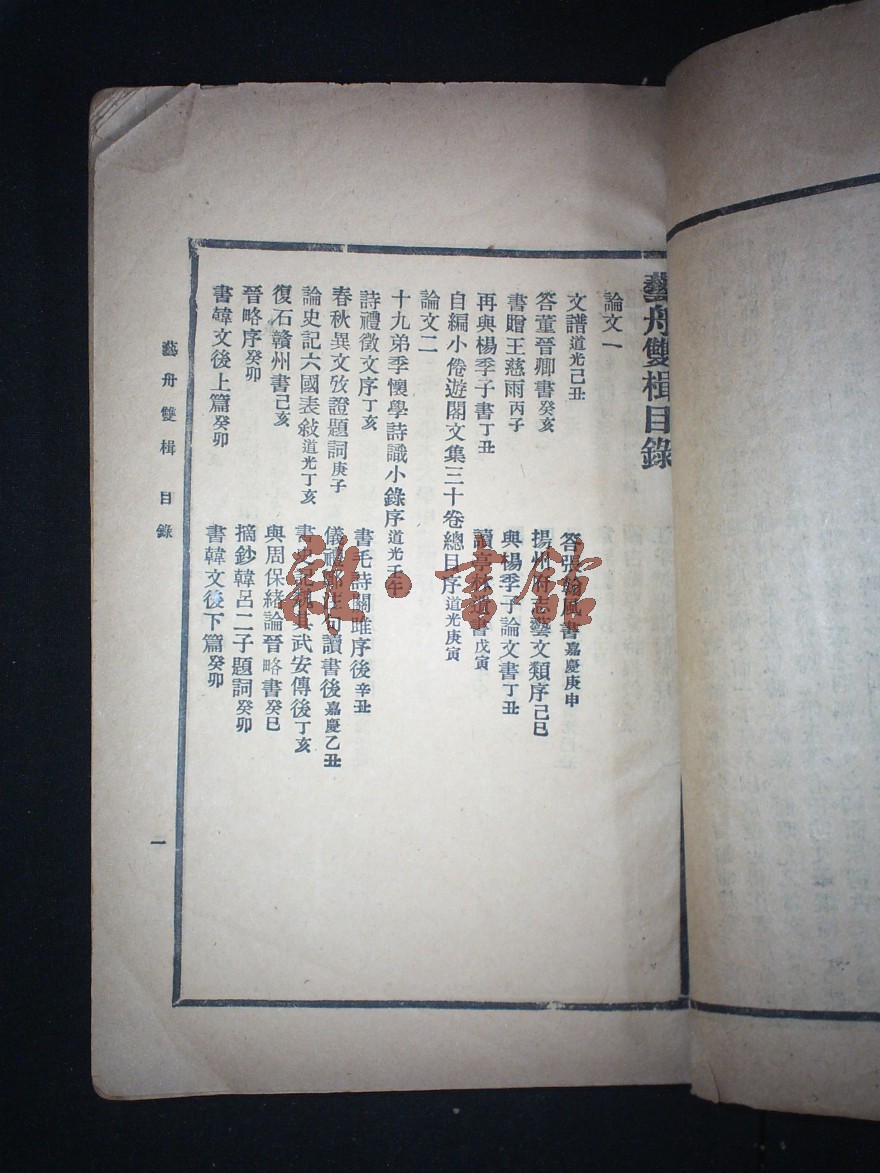 藝舟雙楫目錄
論文一
文譜道光己丑 答張翰風書嘉慶庚申
答董晉卿書癸亥 揚州府志藝文類序己巳
書贈王慈雨丙子 與楊季子論文書丁丑
再與楊季子書丁丑 讀亭林遺書戊寅
自編小倦遊閣文集三十卷總目序道光庚寅
論文二
十九弟季懷學詩識小錄序道光壬午
詩禮徵文序丁亥 書毛詩關雎序後辛丑
春秋異文攷證題詞庚子 儀禮鄭注句讀書後嘉慶乙丑
論史記六國表敍道光丁亥 書史記魏其武安傳後丁亥
復石贛州書己亥 與周保緒論晉略書癸巳
晉略序癸卯 摘鈔韓呂二子題詞癸卯
書韓文後上篇癸卯 書韓文後下篇癸卯
藝舟雙楫 目錄
一
雜·書館